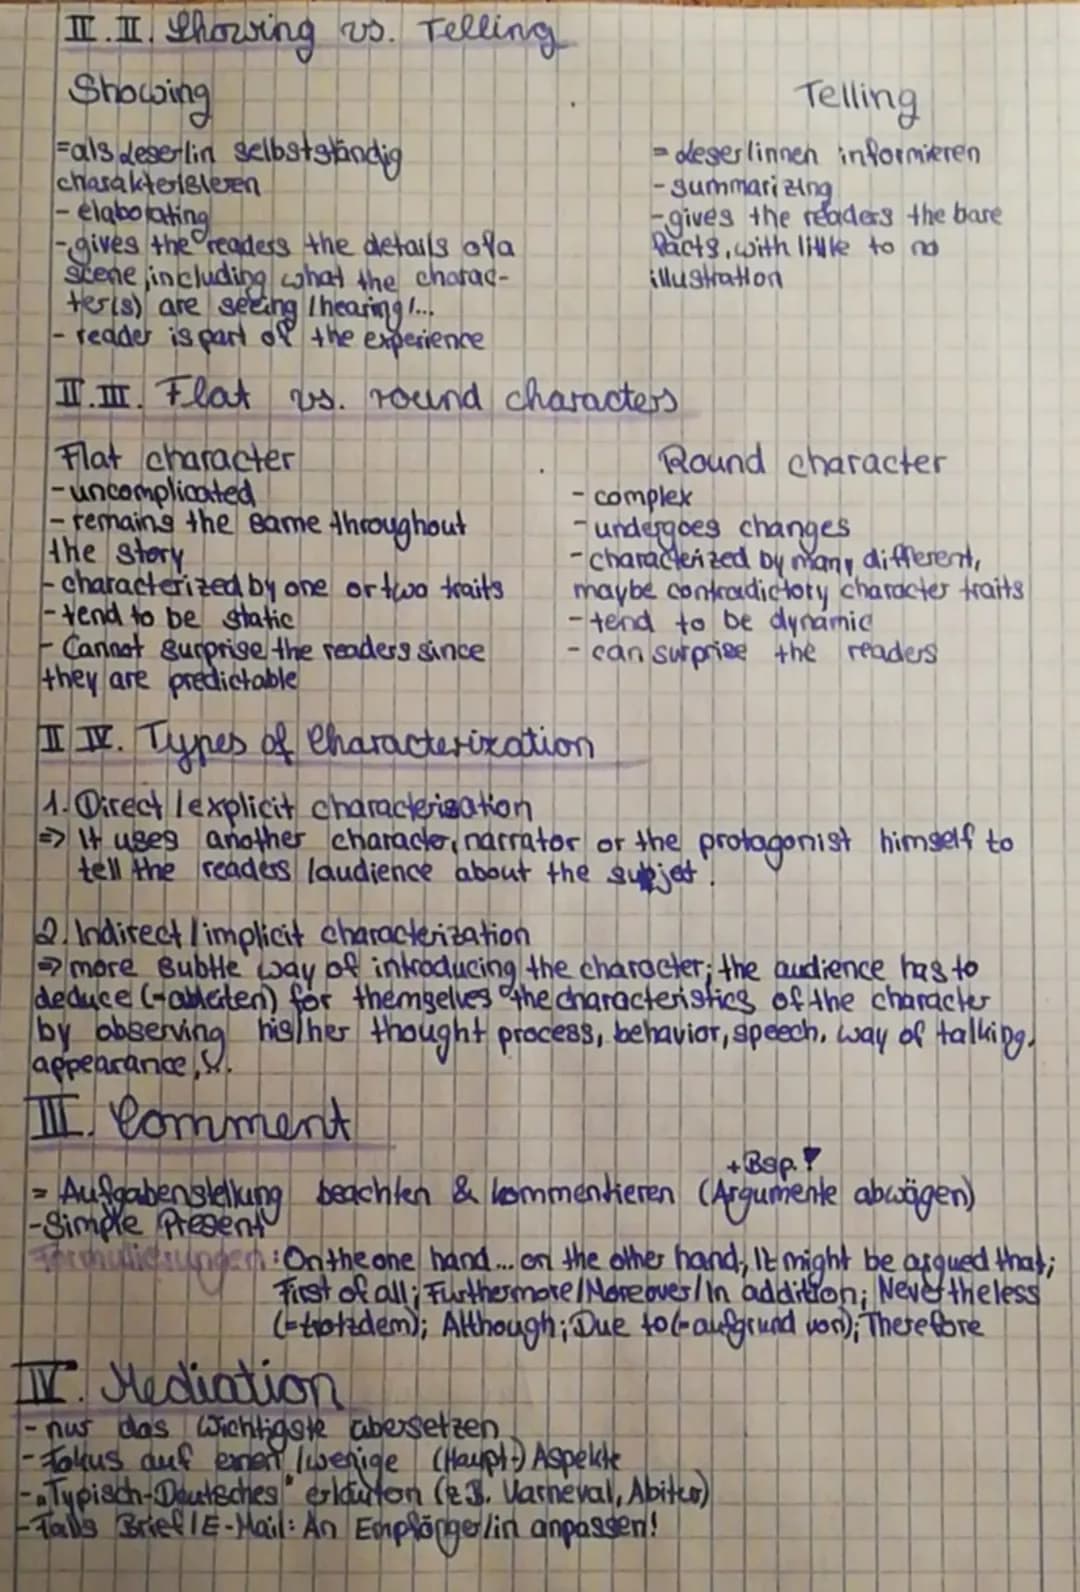 II.II. Showing vs. Telling
Showing
=als Leser/in selbstständig
charakterisieren
- elaborating
- gives the readers the details of a
scene, including what the charac-
ter(s) are seeing/hearing/...
- reader is part of the experience
Telling
= Leser/innen informieren
- summarizing
- gives the readers the bare
facts, with little to no
illustration
II.III. Flat vs. round characters
Flat character
- uncomplicated
- remains the same throughout
the story
- characterized by one or two traits
- tend to be static
- Cannot surprise the readers since
they are predictable
Round character
- complex
- undergoes changes
- characterized by many different,
maybe contradictory character traits
- tend to be dynamic
- can surprise the readers
II IV. Types of Characterization
1. Direct/explicit characterisation
=> It uses another character, narrator or the protagonist himself to
tell the readers/audience about the subjet.
2. Indirect/implicit characterization
=> more subtle way of introducing the character; the audience has to
deduce (=ableiten) for themselves the characteristics of the character
by observing his/her thought process, behavior, speech, way of talking,
appearance,
III. Comment
+Bsp.!
= Aufgabenstellung beachten & kommentieren (Argumente abwägen)
- Simple Present
Formulierungen: On the one hand... on the other hand; It might be argued that;
First of all; Furthermore/Moreover/In addition; Nevertheless
(=trotzdem); Although; Due to (=aufgrund von); Therefore
IV. Mediation
- nur das Wichtigste übersetzen
- Fokus auf einen/wenige (Haupt-) Aspekte
- "Typisch-Deutsches" erläutern (z.B. Karneval, Abitur)
- Falls Brief/E-Mail: An Empfänger/in anpassen!